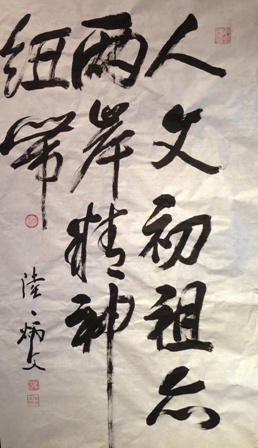 人文初祖 
两岸精神
纽带
陆炳文